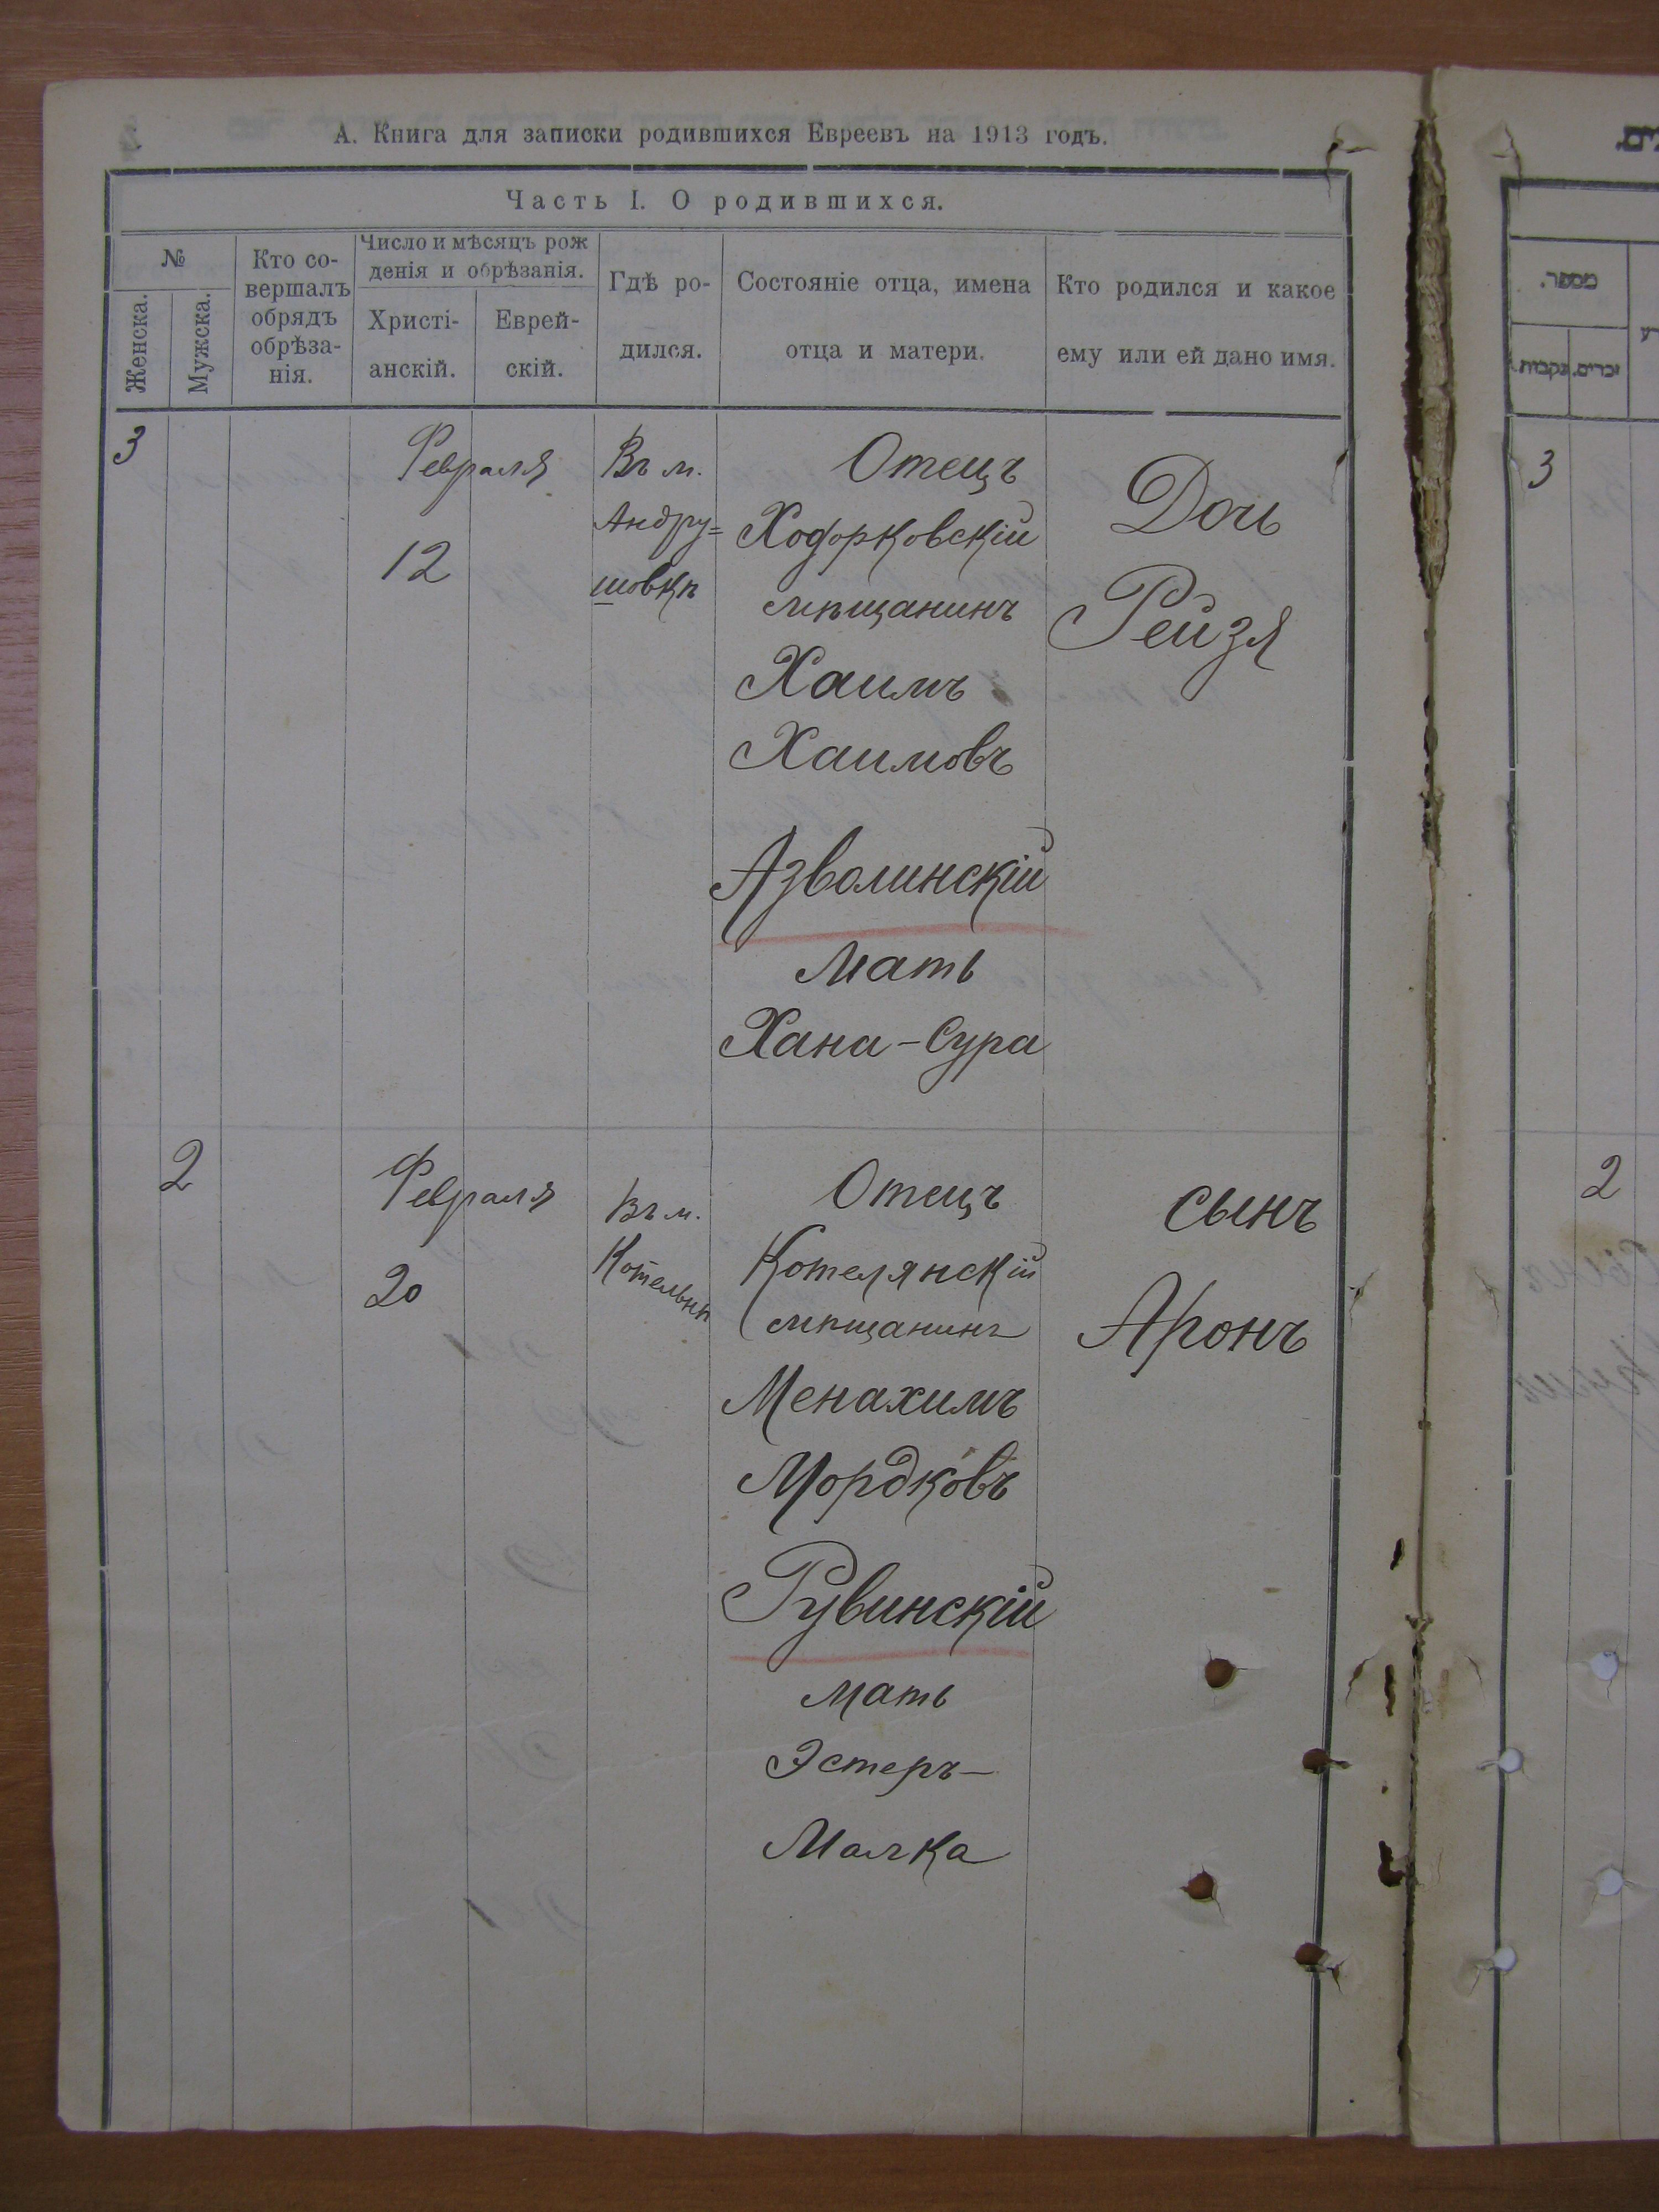 А. Книга для записки родившихся Евреевъ на 1913 годъ.
Часть I. О родившихся.
№
Женска.
Мужска.
Кто со-
вершалъ
обрядъ
обрѣза-
нія.
Число и мѣсяцъ рож
денія и обрѣзанія.
Христі-
анскій.
Еврей-
скій.
Гдѣ ро-
дился.
Состояніе отца, имена
отца и матери.
Кто родился и какое
ему или ей дано имя.
3
Февраля
12
Въ м.
Андру=
шовкѣ
Отецъ
Ходорковскій
мѣщанинъ
Хаимъ
Хаимовъ
Азволинскій
Мать
Хана-Сура
Дочь
Рейзя
2
Февраля
20
Въ м.
Котельнѣ
Отецъ
Котелянскій
мѣщанинъ
Менахимъ
Мордковъ
Рувинскій
Мать
Эстеръ-
Малка
сынъ
Аронъ
מספר.
זכרים.
נקבות.
3
2